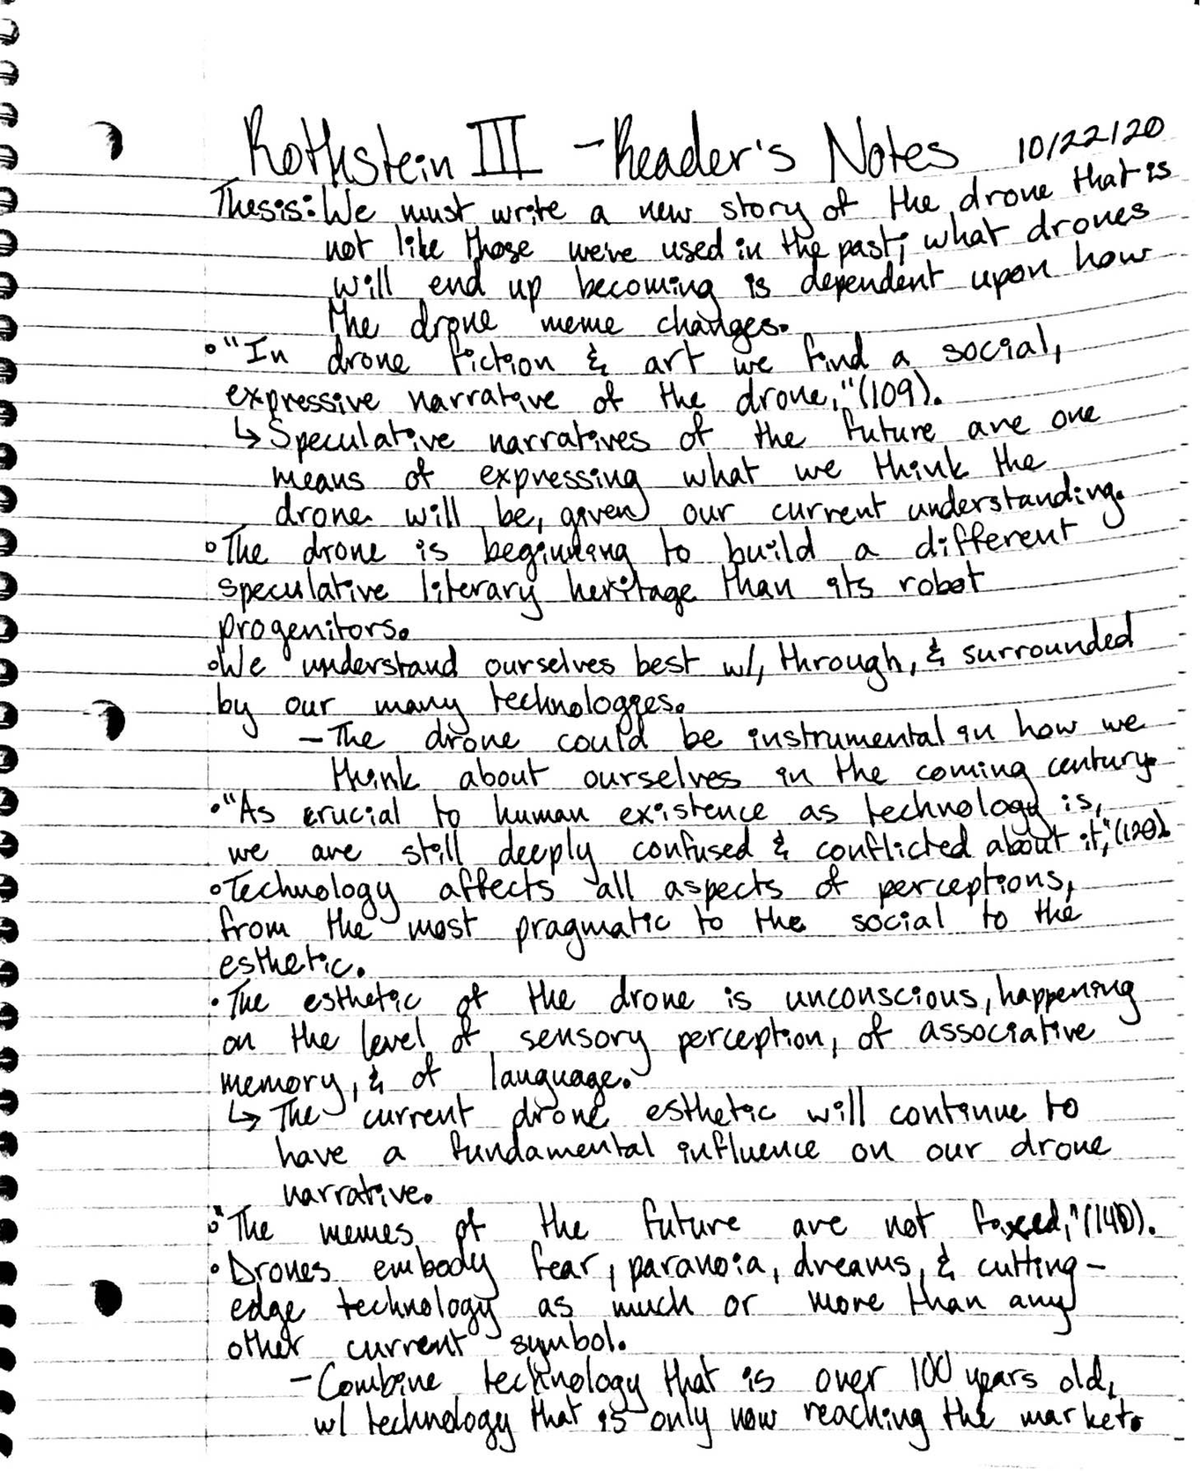 Rothstein III - Reader's Notes 10/22/20
Thesis: We must write a new story of the drone that is
not like those we've used in the past; what drones
will end up becoming is dependent upon how
the drone meme changes.
•"In drone fiction & art we find a social,
expressive narrative of the drone,"(109).
↳ Speculative narratives of the future are one
means of expressing what we think the
drone will be, given our current understanding.
•The drone is beginning to build a different
speculative literary heritage than its robot
progenitors.
•We understand ourselves best w/, through, & surrounded
by our many technologies.
-The drone could be instrumental in how we
think about ourselves in the coming century.
•"As crucial to human existence as technology is,
we are still deeply confused & conflicted about it,"
•Technology affects all aspects of perceptions,
from the most pragmatic to the social to the
esthetic.
•The esthetic of the drone is unconscious, happening
on the level of sensory perception, of associative
memory, & of language.
↳ The current drone esthetic will continue to
have a fundamental influence on our drone
narrative.
•"The memes of the future are not fixed,"(140).
•Drones embody fear, paranoia, dreams, & cutting-
edge technology as much or more than any
other current symbol.
-Combine technology that is over 100 years old,
w/ technology that is only now reaching the market.